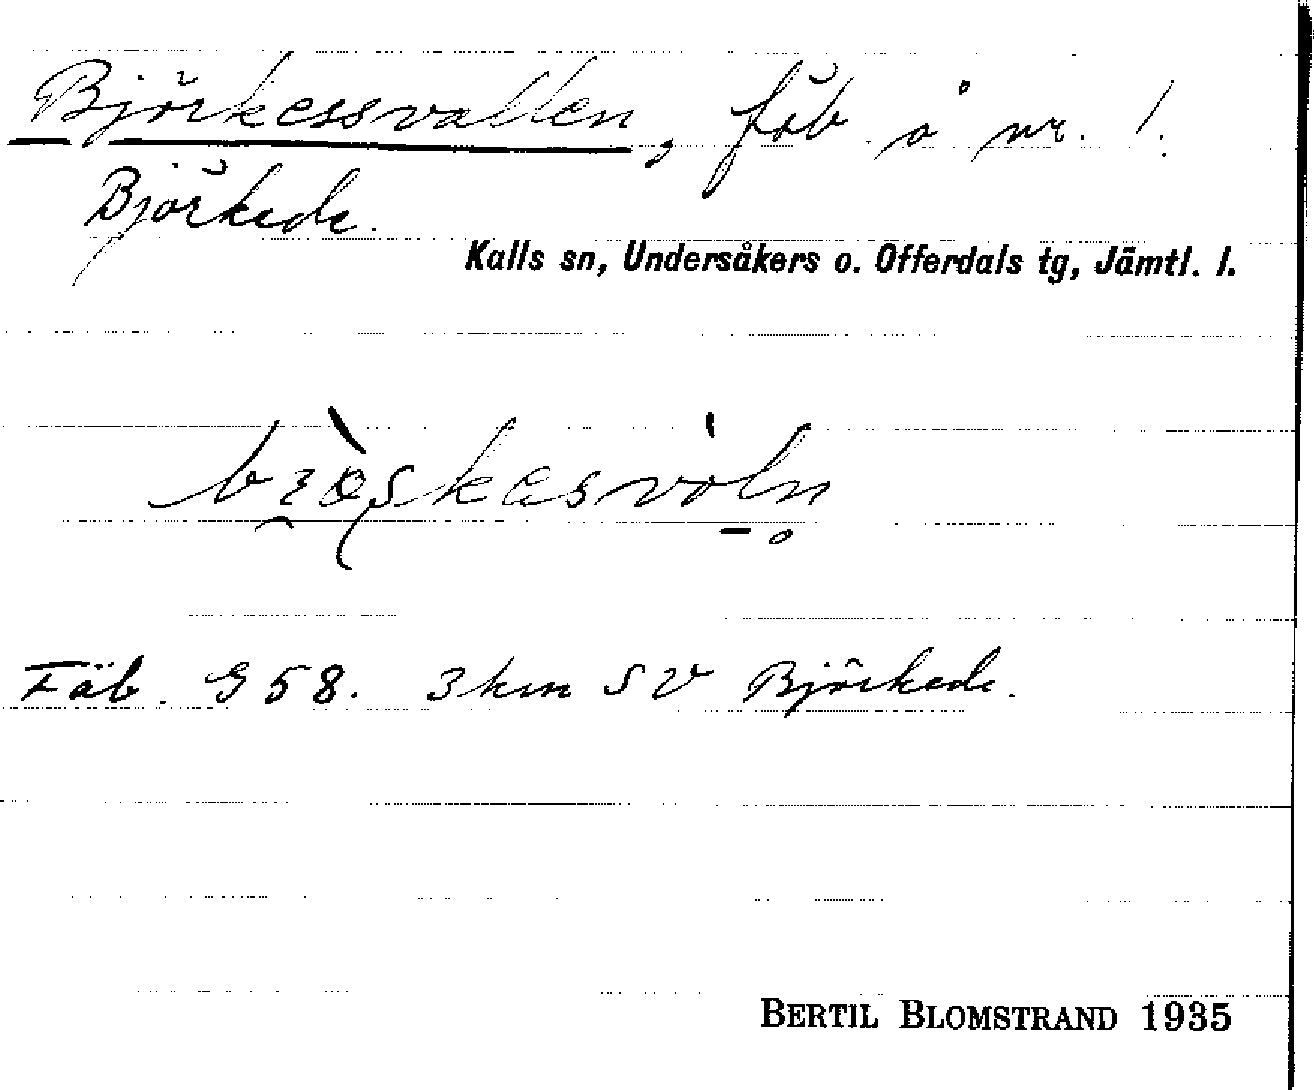 Björkessvallen, fäb å nr. 1.
Björkede.
Kalls sn, Undersåkers o. Offerdals tg, Jämtl. l.
Fäb. G 58. 3 km SV Björkede.
BERTIL BLOMSTRAND 1935